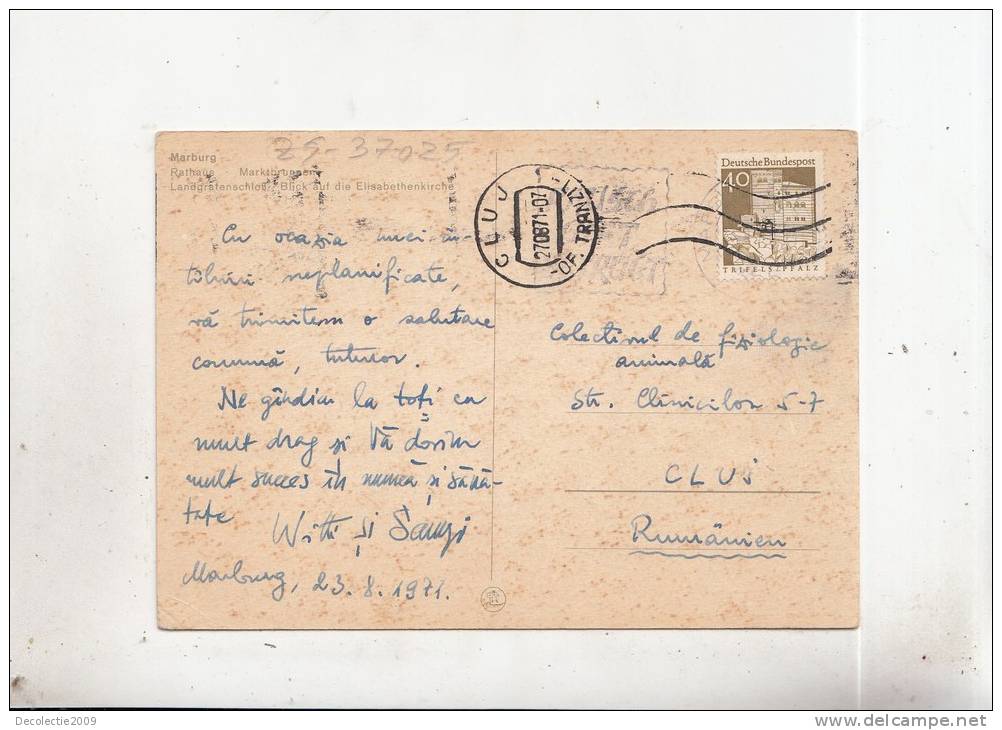 Marburg
Rathaus Marktbrunnen
Landgrafenschloß Blick auf die Elisabethenkirche
ZS-37025
Cu ocazia unei în-
tîlniri neplanificate,
vă trimitem o salutare
comună, tuturor.
Ne gîndim la toți cu
mult drag și Vă dorim
mult succes în muncă și sănă-
tate
Witti și
Marburg, 23.8.1971.
CLUJ
270871-07
-OF. TRANZIT-
Deutsche Bundespost
40
TRIFELS/PFALZ
Colectivul de fiziologie
animală
Str. Clinicilor 5-7
CLUJ
Rumänien
Decolectie2009
delcampe.net